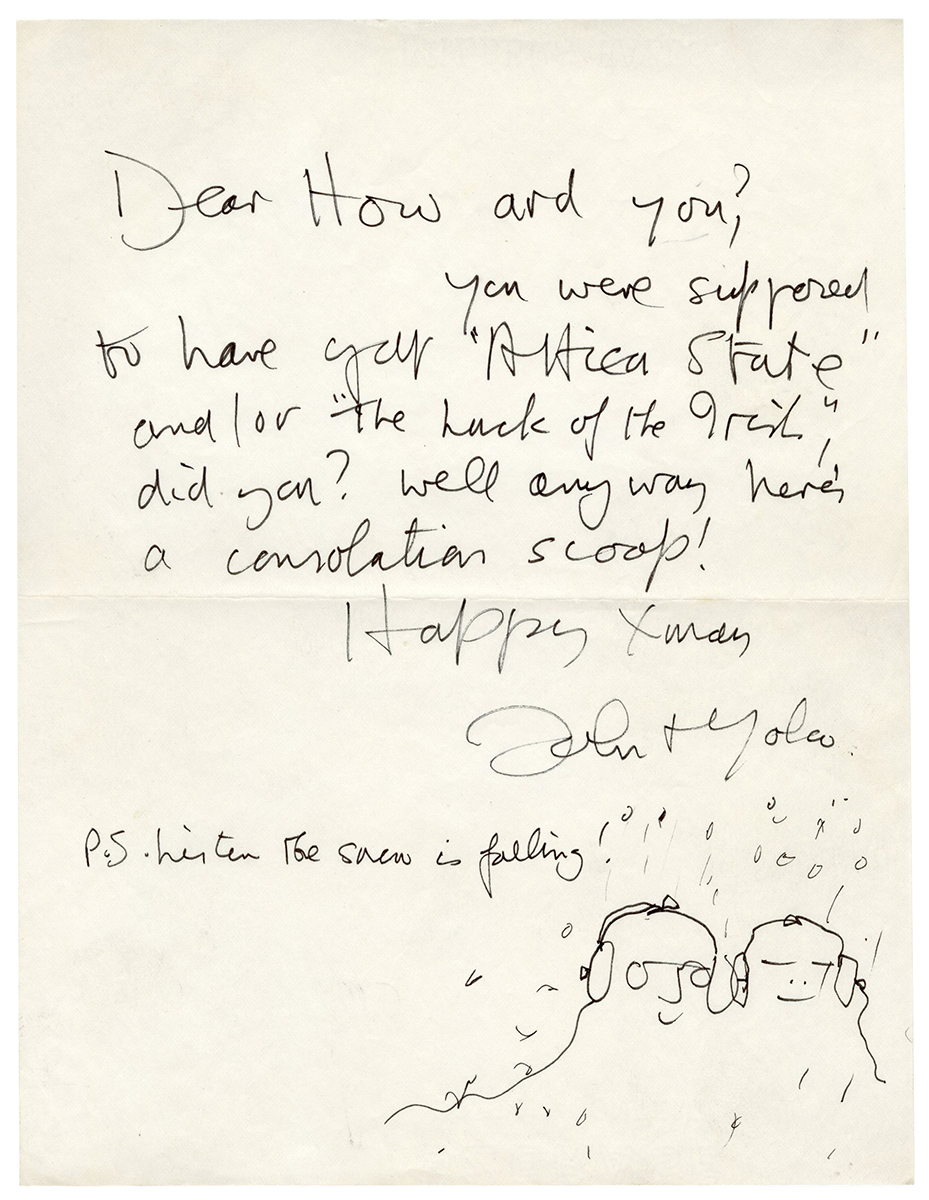 Dear How ard you?
you were supposed
to have got "Attica State"
and/or "the Luck of the Irish",
did you? well anyway here's
a consolation scoop!
Happy Xmas
John + Yoko.
P.S. Listen the snow is falling!